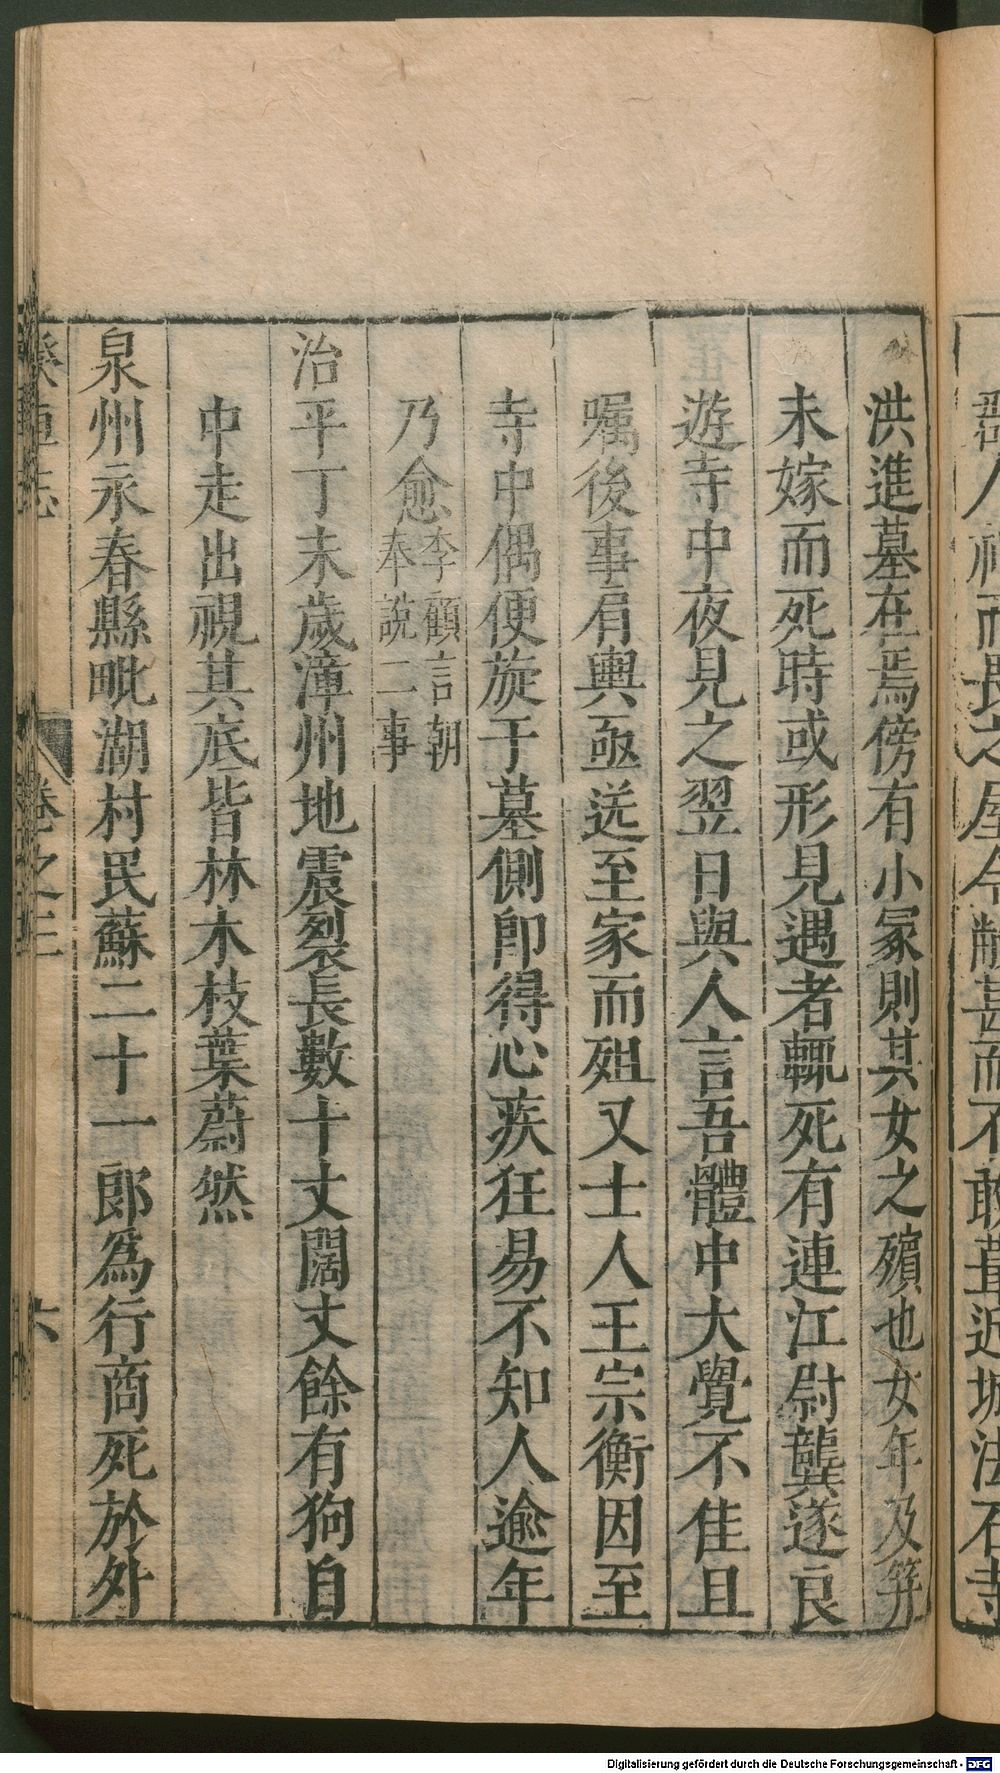 祠而長之屋令敝甚而不敢葺近城法石寺
洪進墓在焉傍有小冢則其女之殯也女年及笄
未嫁而死時或形見遇者輒死有連江尉龔遂良
遊寺中夜見之翌日與人言吾體中大覺不佳且
嘱後事肩輿亟送至家而殂又士人王宗衡因至
寺中偶便旋于墓側卽得心疾狂易不知人逾年
乃愈
李顧言朝
奉說二事
治平丁未歲漳州地震裂長數十丈闊丈餘有狗自
中走出視其底皆林木枝葉蔚然
泉州永春縣毗湖村民蘇二十一郎爲行商死於外
卷之三
六
Digitalisierung gefördert durch die Deutsche Forschungsgemeinschaft - DFG